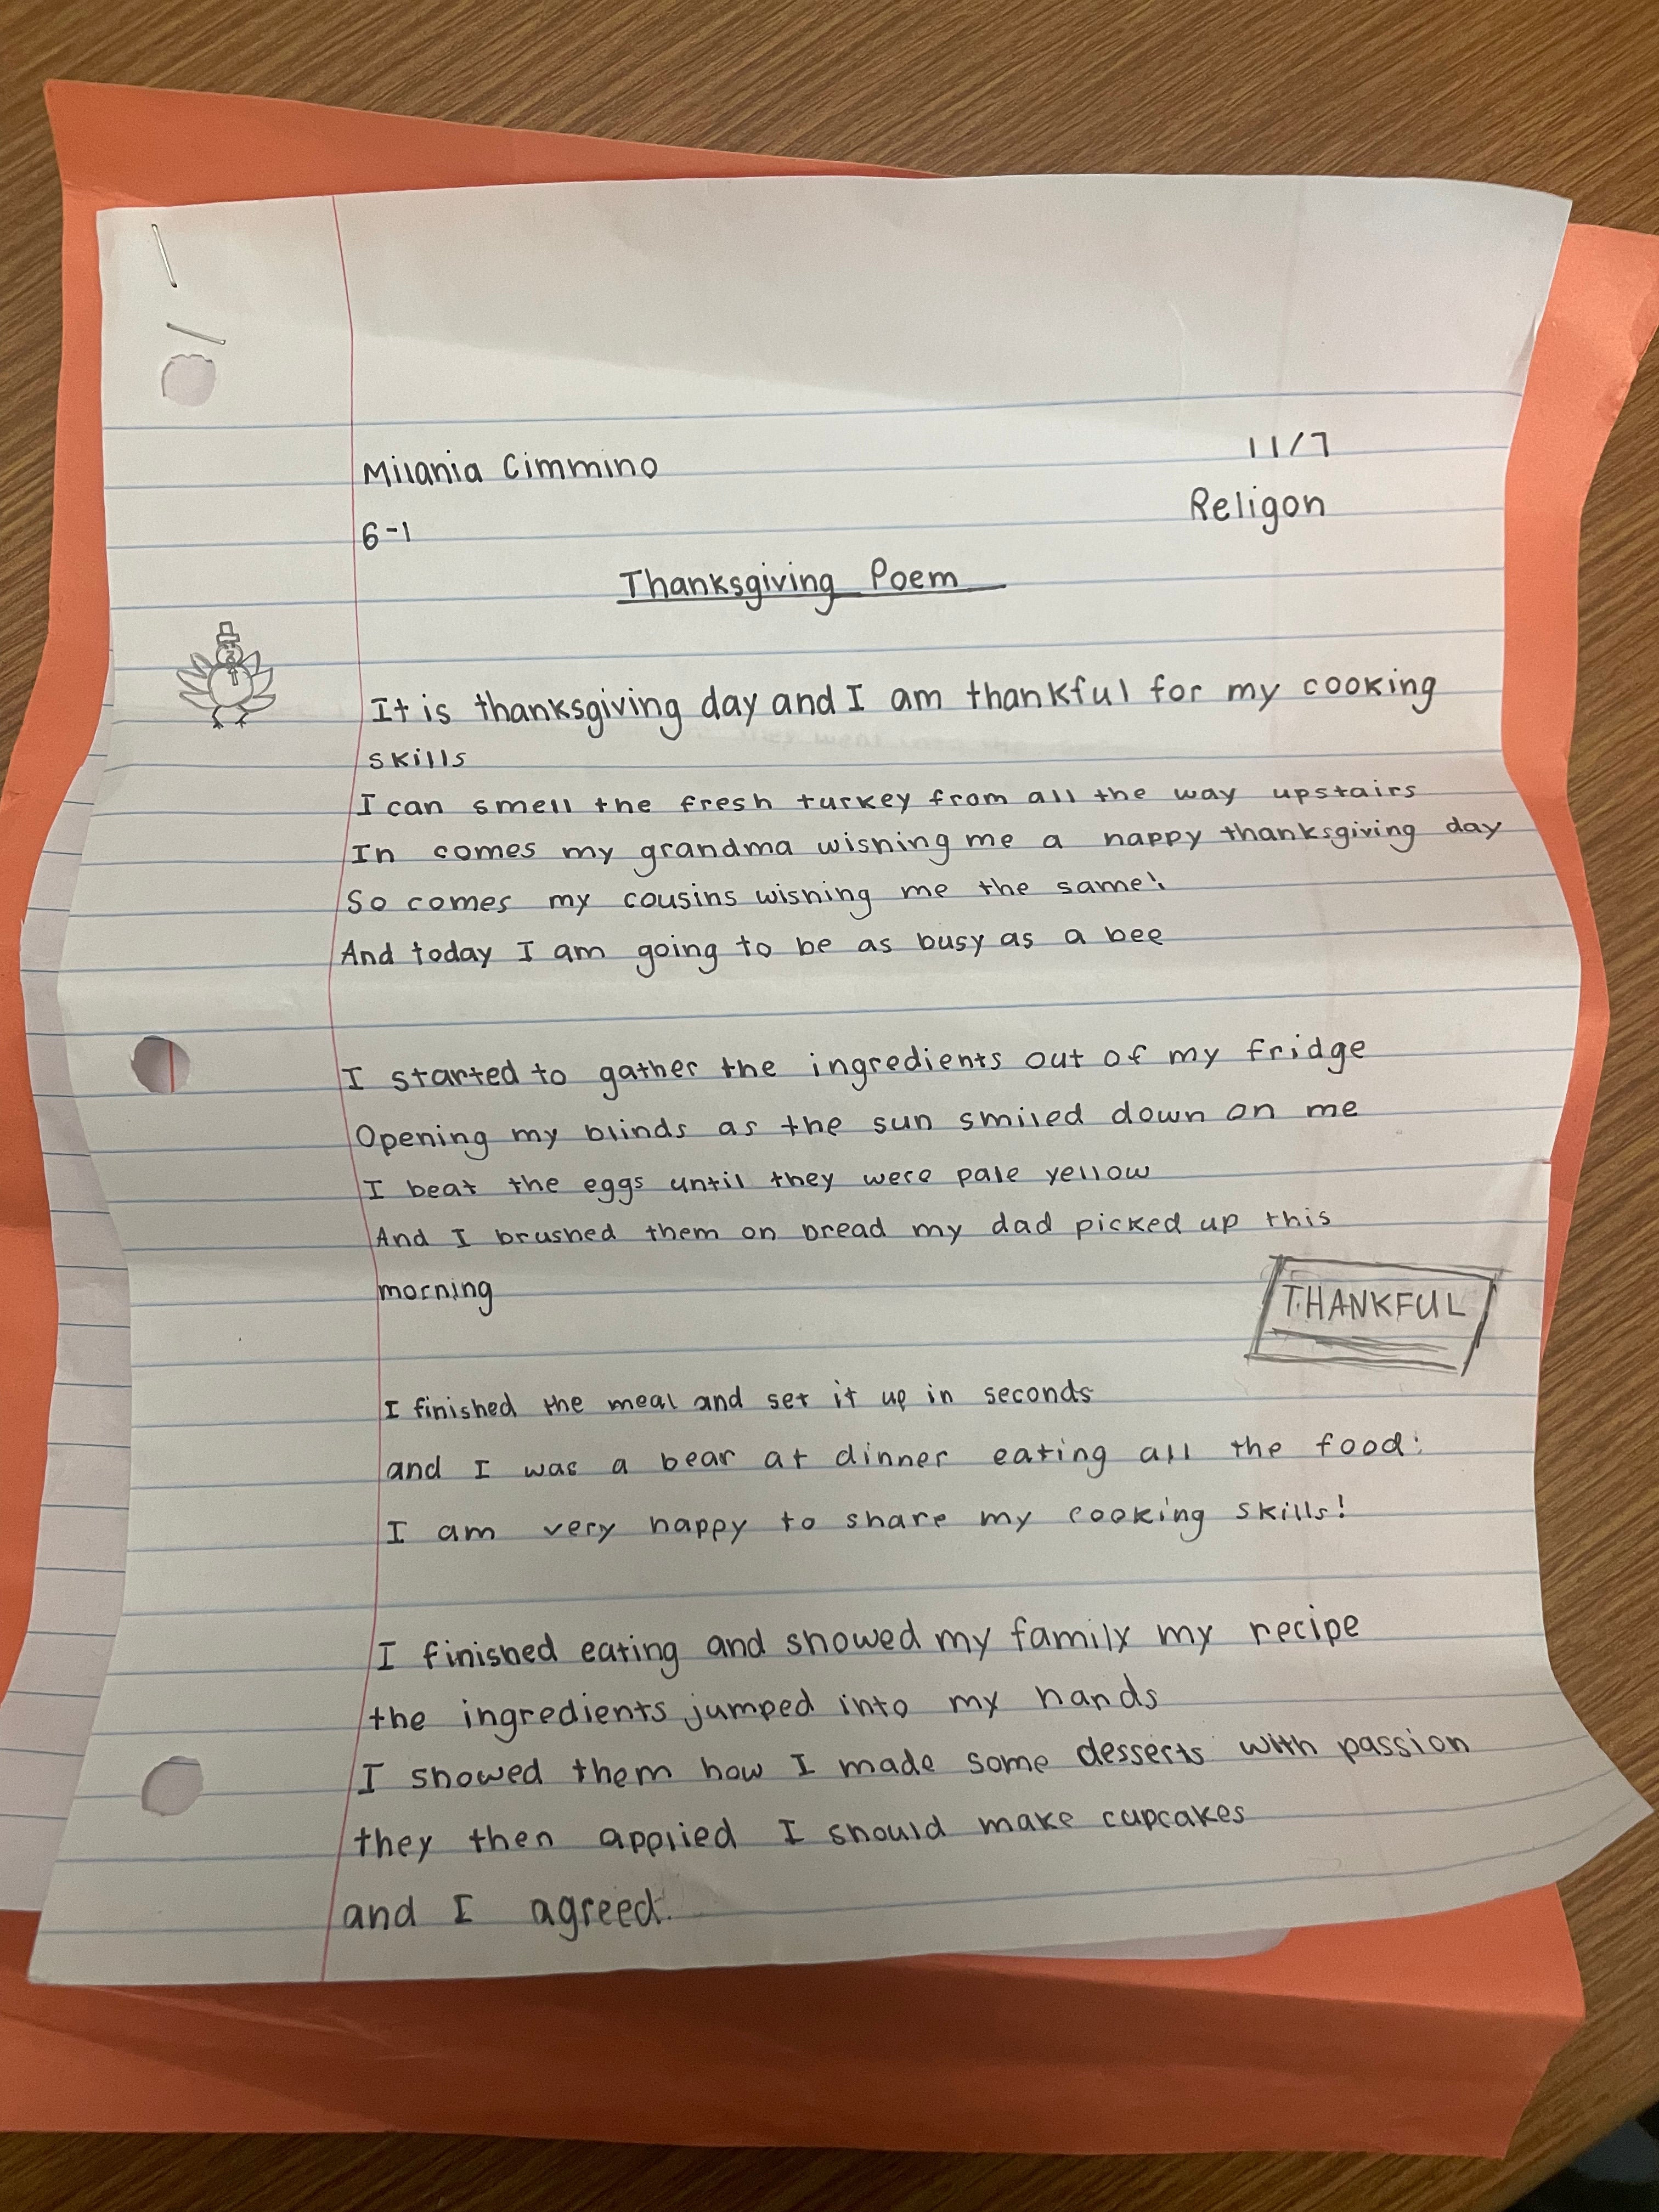 11/7
Milania Cimmino
Religon
6-1
Thanksgiving Poem
It is thanksgiving day and I am thankful for my cooking
skills
I can smell the fresh turkey from all the way upstairs
In comes my grandma wishing me a happy thanksgiving day
So comes my cousins wishing me the same!
And today I am going to be as busy as a bee
I started to gather the ingredients out of my fridge
Opening my blinds as the sun smiled down on me
I beat the eggs until they were pale yellow
And I brushed them on bread my dad picked up this
morning
THANKFUL
I finished the meal and set it up in seconds
and I was a bear at dinner eating all the food!
I am very happy to share my cooking skills!
I finished eating and showed my family my recipe
the ingredients jumped into my hands
I showed them how I made some desserts with passion
they then applied I should make cupcakes
and I agreed.